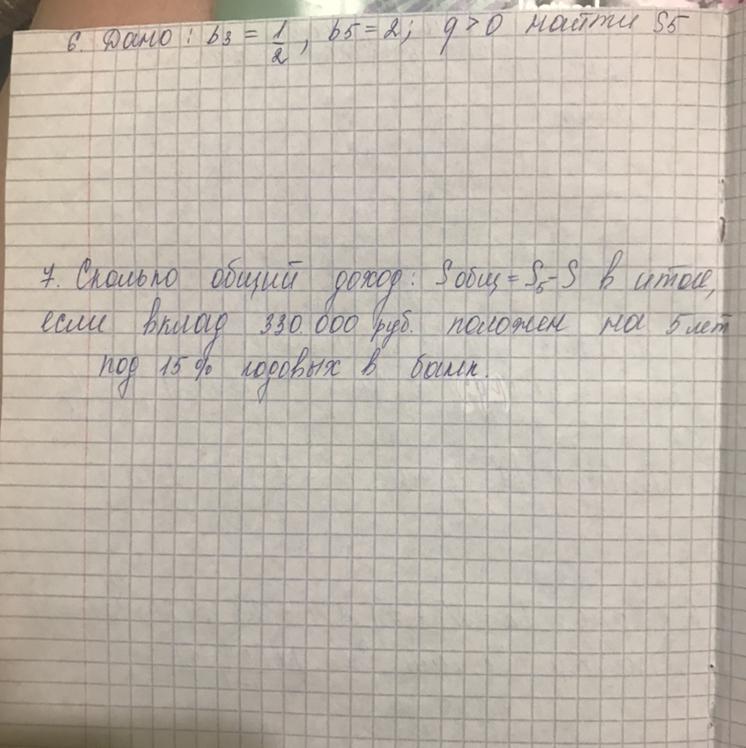 6. Дано: b3 = 1/2, b5 = 2; q > 0 найти S5
7. Сколько общий доход: Sобщ = S5 - S в итоге,
если вклад 330 000 руб. положен на 5 лет
под 15% годовых в банк.